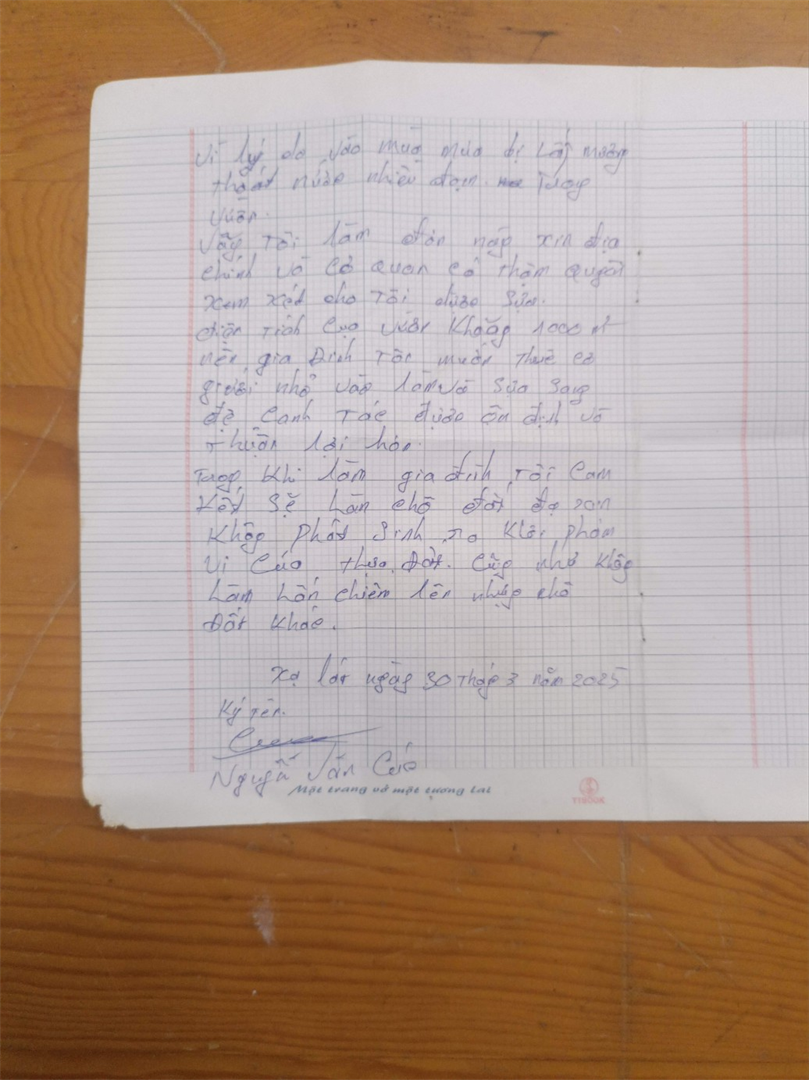 Vì lý do vào mùa mưa bị lấp mương
thoát nước nhiều đoạn trong
vườn.
Vậy tôi làm đơn này xin địa
chính và cơ quan có thẩm quyền
xem xét cho tôi được sửa.
diện tích của vườn khoảng 1000 m
nên gia đình tôi muốn thuê cơ
giới nhỏ vào làm và sửa sang
để canh tác được ổn định và
thuận lợi hơn.
Trong khi làm gia đình tôi cam
kết sẽ làm chỗ đất
không phát sinh ra khỏi phạm
vi của thửa đất. Cũng như không
làm lấn chiếm lên những chỗ
đất khác.
Xạ lát ngày 30 tháng 3 năm 2025
Ký tên.
Nguyễn Văn
Một trang vở một tương lai